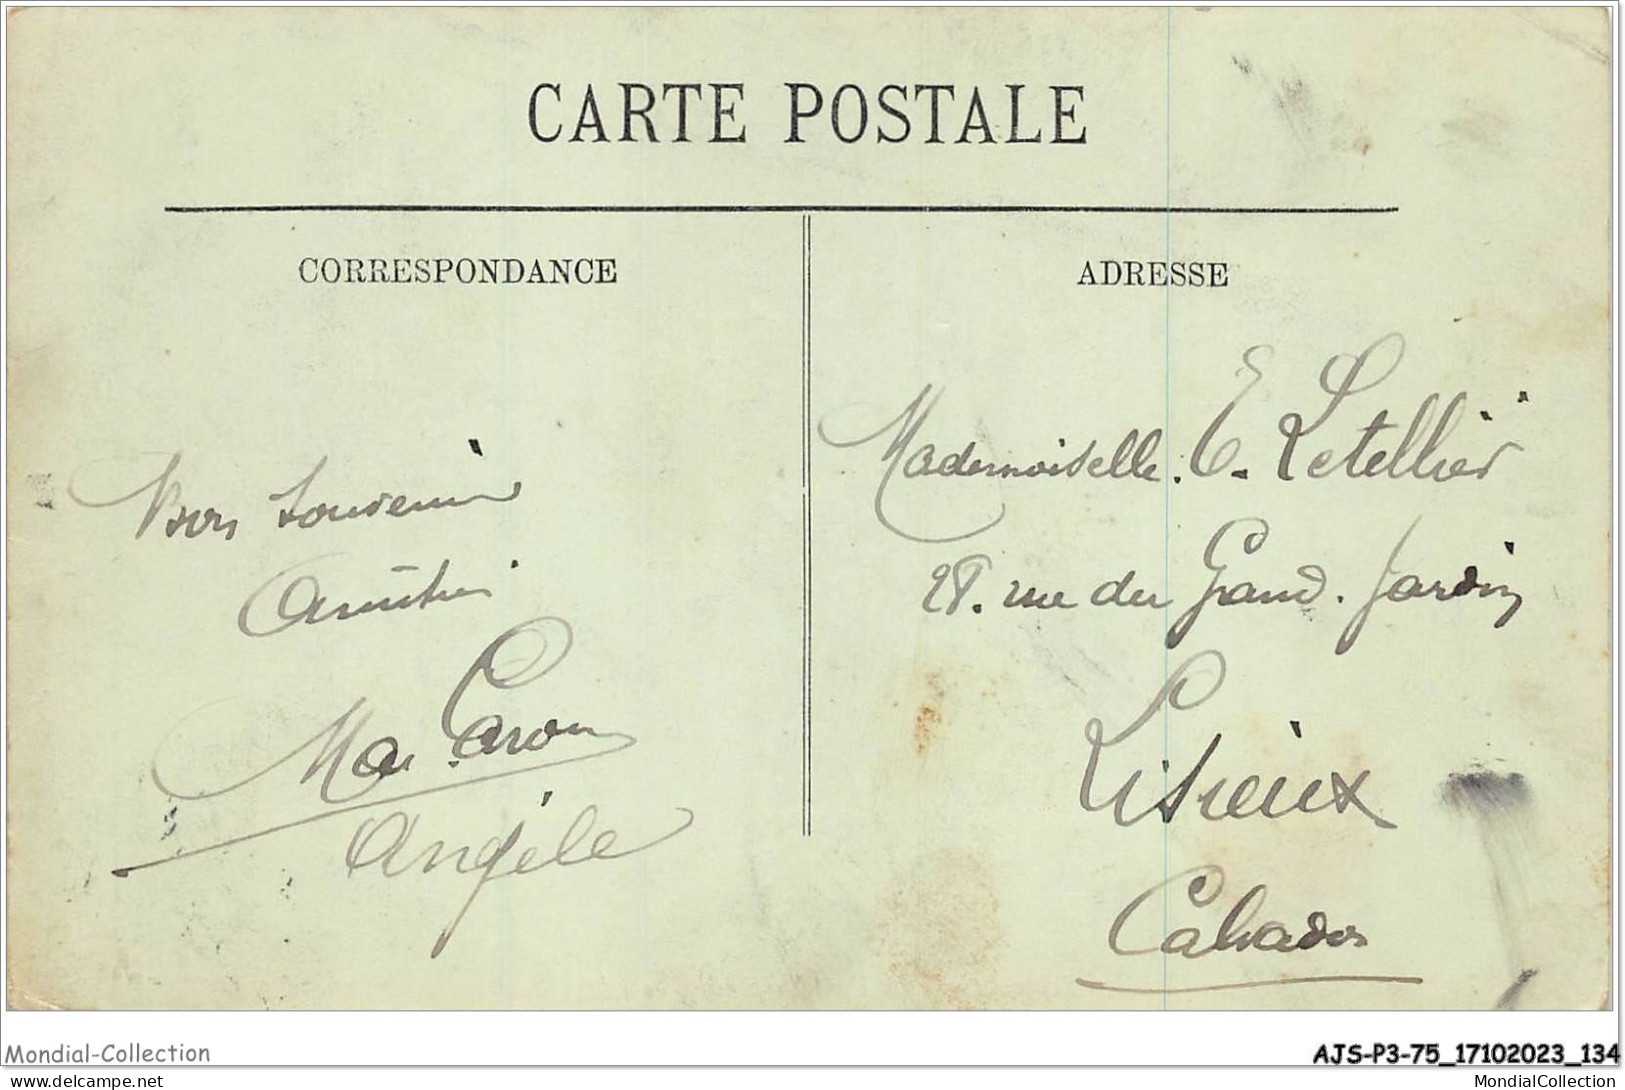 CARTE POSTALE
CORRESPONDANCE
Bon Souvenir
Ma. Caron
Angèle
ADRESSE
Mademoiselle. E. Letellier
28. rue du Grand. Jardin
Lisieux
Calvados
Mondial-Collection
AJS-P3-75_17102023_134
www.delcampe.net
MondialCollection